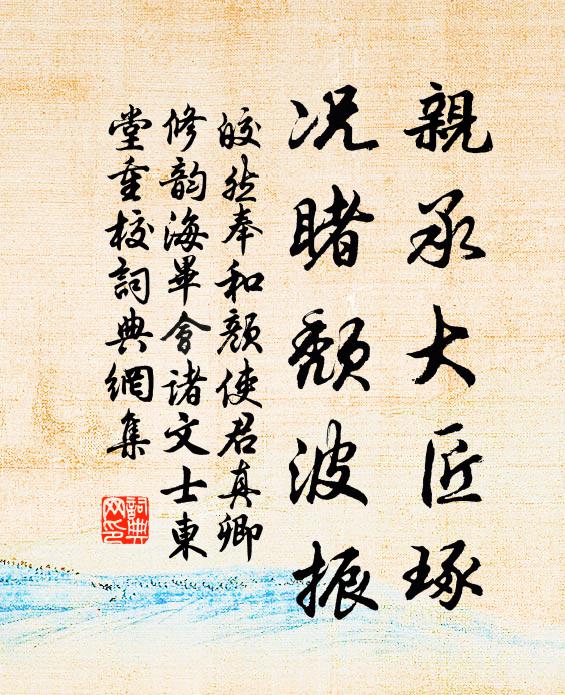 親承大匠琢
况睹頽波振
皎然奉和顏使君真卿
修韵海畢會諸文士東
堂重校詞典網集
詞典网印